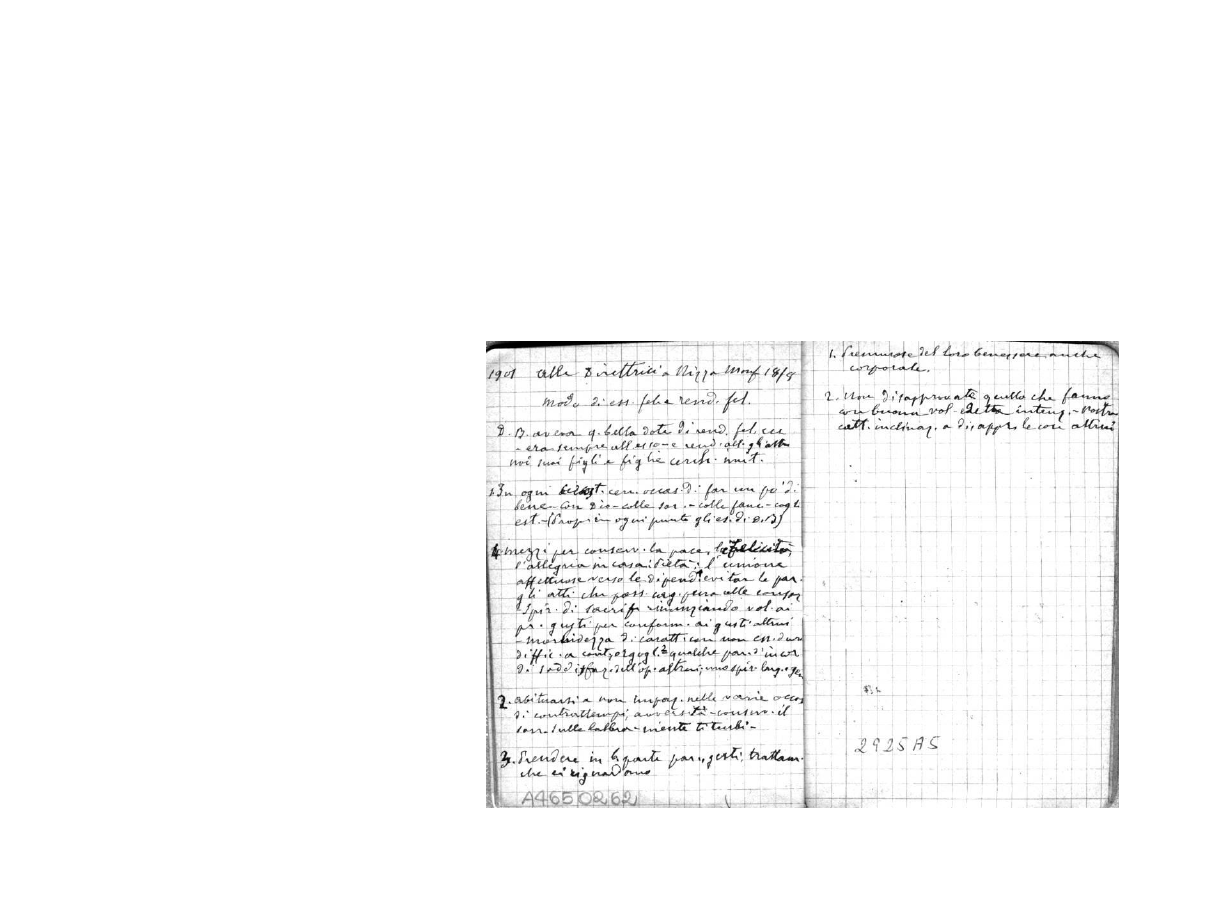 1901 Alle Direttrici a Nizza Monf 18/9
Modo di ess. fel. e rend. fel.
D. B. aveva q. bella dote di rend. fel. ecc
- era sempre all. esso - e rend. all. gli altri
noi suoi figli e figlie cerch. imit.
In ogni cerc. occas. di far un po' di
bene - con Dio - colle sor. - colle fanc - cogli
est. - (Svopi in ogni punto gli es. di D. B)
1 Mezzi per conserv. la pace, la felicità,
l'allegria in casa: pietà; l'unione
affettuose verso le dipend. evitar le par.
gli atti che poss. arg. pena alle consor
Spir. di sacrif. rinunziando vol. ai
pr. gusti per conform. ai gusti altrui
- morbidezza di caratt. con non es. dure
diffic. a cont, orgogl. qualche par. d'incor
di soddisfaz. dell'op. altrui; uno spir. larg. e gen
2. Abituarsi a non impaz. nelle varie occas
di contrattempi; avversità - conserv. il
sorr. sulle labbra - niente ti turbi -
3. Prendere in b. parte par., gesti, trattam.
che ci riguardano
A4650262
1. Premurose del loro benessere anche
corporale.
2. Non disapprovate quello che fanno
con buona vol. e retta intenz. - Nostra
catt. inclinaz. a disappr. le cose altrui
2925 A5